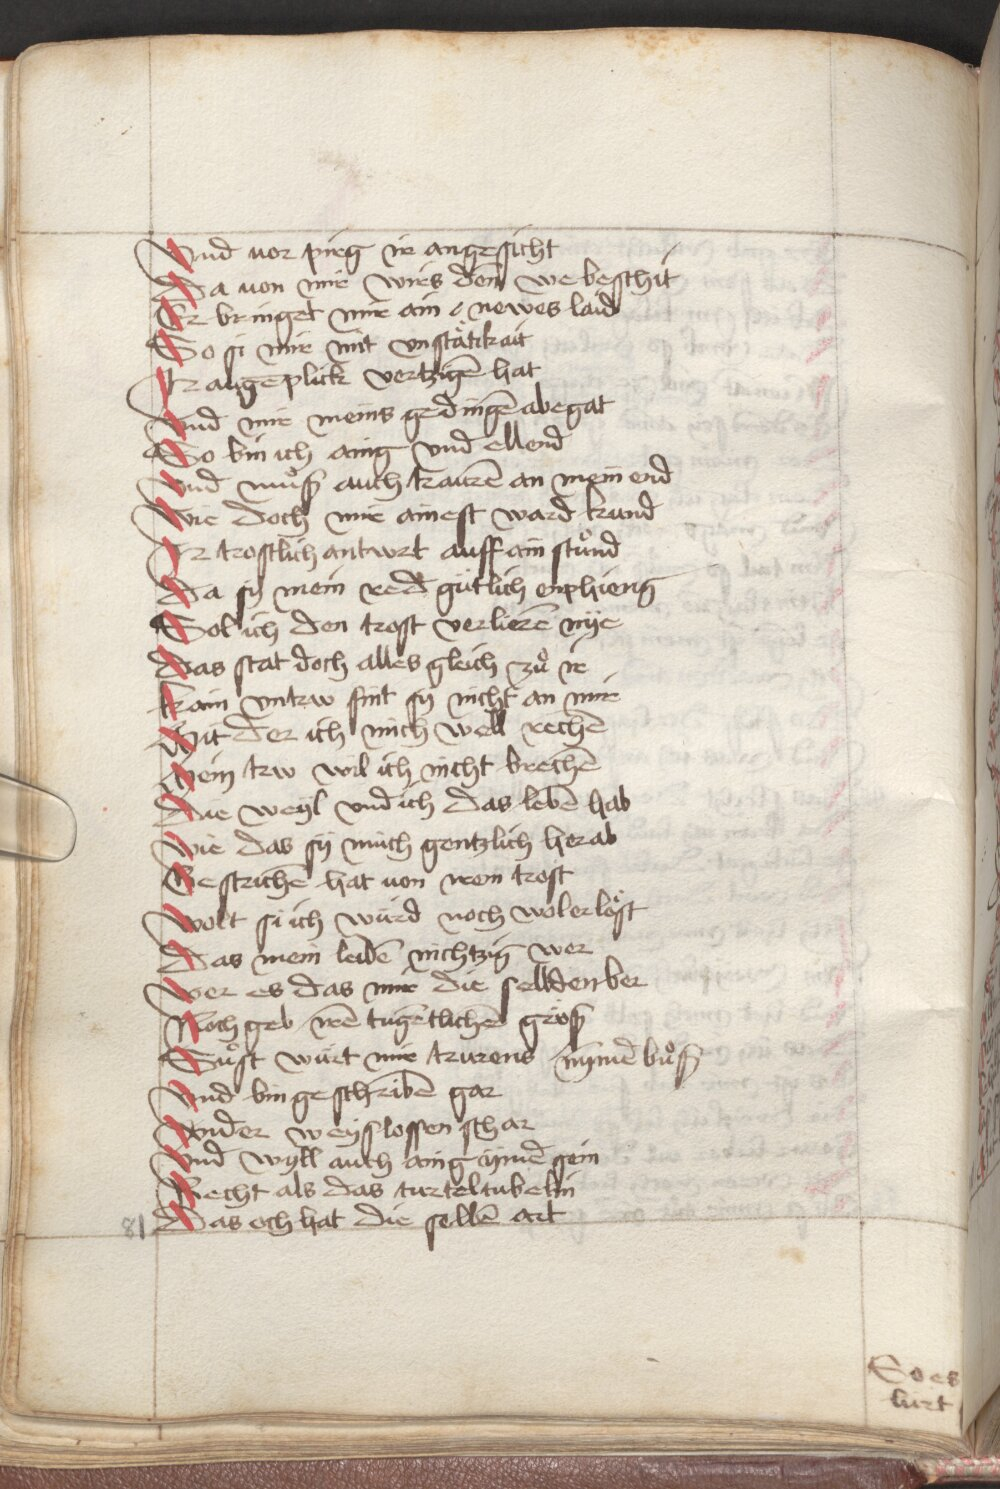 Vnd vor pirg ir angesicht
Da von mir wirs den we beschit
Er bringet mir ain newes laid
So si mir mit vnstätikait
Ir augeplick vertzigē hat
Vnd mir meins gedingē abegat
So bin ich ainig vnd ellend
Vnd muͦß auch traurē an mein end
Wie doch mir ainest ward kund
Ir trostlich antwrt auff ain stund
Da sy mein red gütlich enphieng
Sol ich den trost verlierē nye
Das stat doch alles gleich zuͦ ir
kain vntrw fint sy nicht an mir
Mit der ich mich well rechē
Mein trw wil ich nicht brechē
Die weyl vnd ich das lebē hab
Wie das sy mich gentzlich herab
Gestrichē hat von irem trost
Wolt si ich würd noch wol erlöst
Das mein leidē nichtzig wer
Wer es das mir die selld enber
Noch geb irē tugētlichē größ
Suͦst würt mir trurens nymē buͦß
Vnd bin geschribē gar
An der weyßlossen schar
Vnd wyll auch ainig ymē sein
Recht als das turteltubelin
Das och hat die selbē art
81
So es
lirt